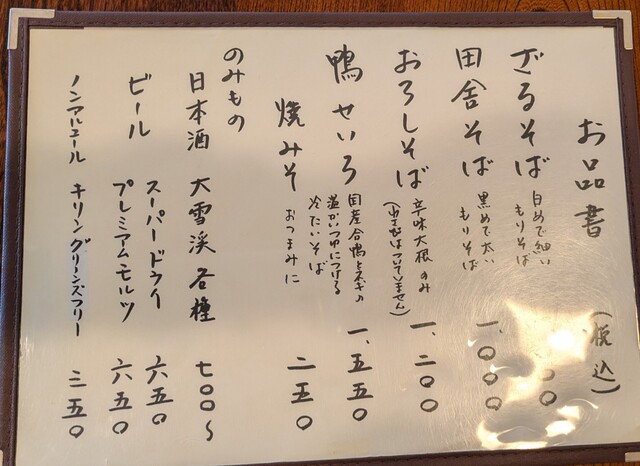 お品書 (税込)
ざるそば 白めで細い
もりそば 00
田舎そば 黒めで太い
もりそば 一、000
おろしそば 辛味大根のみ
(わさびはついていません) 一、二00
鴨せいろ 国産合鴨とネギの
温かいつゆにつける
冷たいそば 一、五五0
焼みそ おつまみに 二五0
のみもの
日本酒 大雪渓 各種 七00〜
ビール スーパードライ 六五0
プレミアムモルツ 六五0
ノンアルコール キリングリーンズフリー 三五0